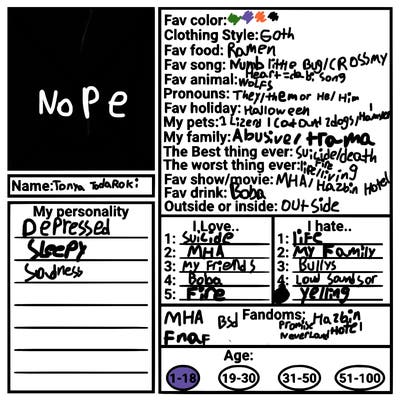 NOPE
Name: Tonya Todaroki
My personality
Depressed
Sleepy
Sadness
Fav color:
Clothing Style: Goth
Fav food: Ramen
Fav song: Numb little Bug/CROSS my
Heart = da b. song
Fav animal: wolfs
Pronouns: They/them or He/Him
Fav holiday: Halloween
My pets: 1 Lizerd 1 Cat and 2 dogs/1
My family: Abusive/trama
The Best thing ever: Suicide/death
The worst thing ever: life/living
Fav show/movie: MHA/Hazbin Hotel
Fav drink: Boba
Outside or inside: outside
I Love..
1: Suicide
2: MHA
3: My Friends
4: Boba
5: Fire
I hate..
1: life
2: My Family
3: Bullys
4: Loud Sands or
5: yelling
Fandoms:
MHA Bsd Promise Neverland Hazbin Hotel
Fnaf
Age:
1-18 19-30 31-50 51-100